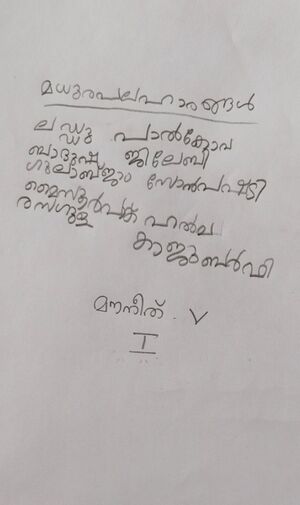 മധുരപലഹാരങ്ങൾ
ലഡ്ഡു പാൽകോവ
ബാദുഷ ജിലേബി
ഗുലാബ്ജാം സോൻപപ്ടി
മൈസൂർപക് ഹൽവ
രസഗുള
കാജുബർഫി
മൗനീത് . V
I